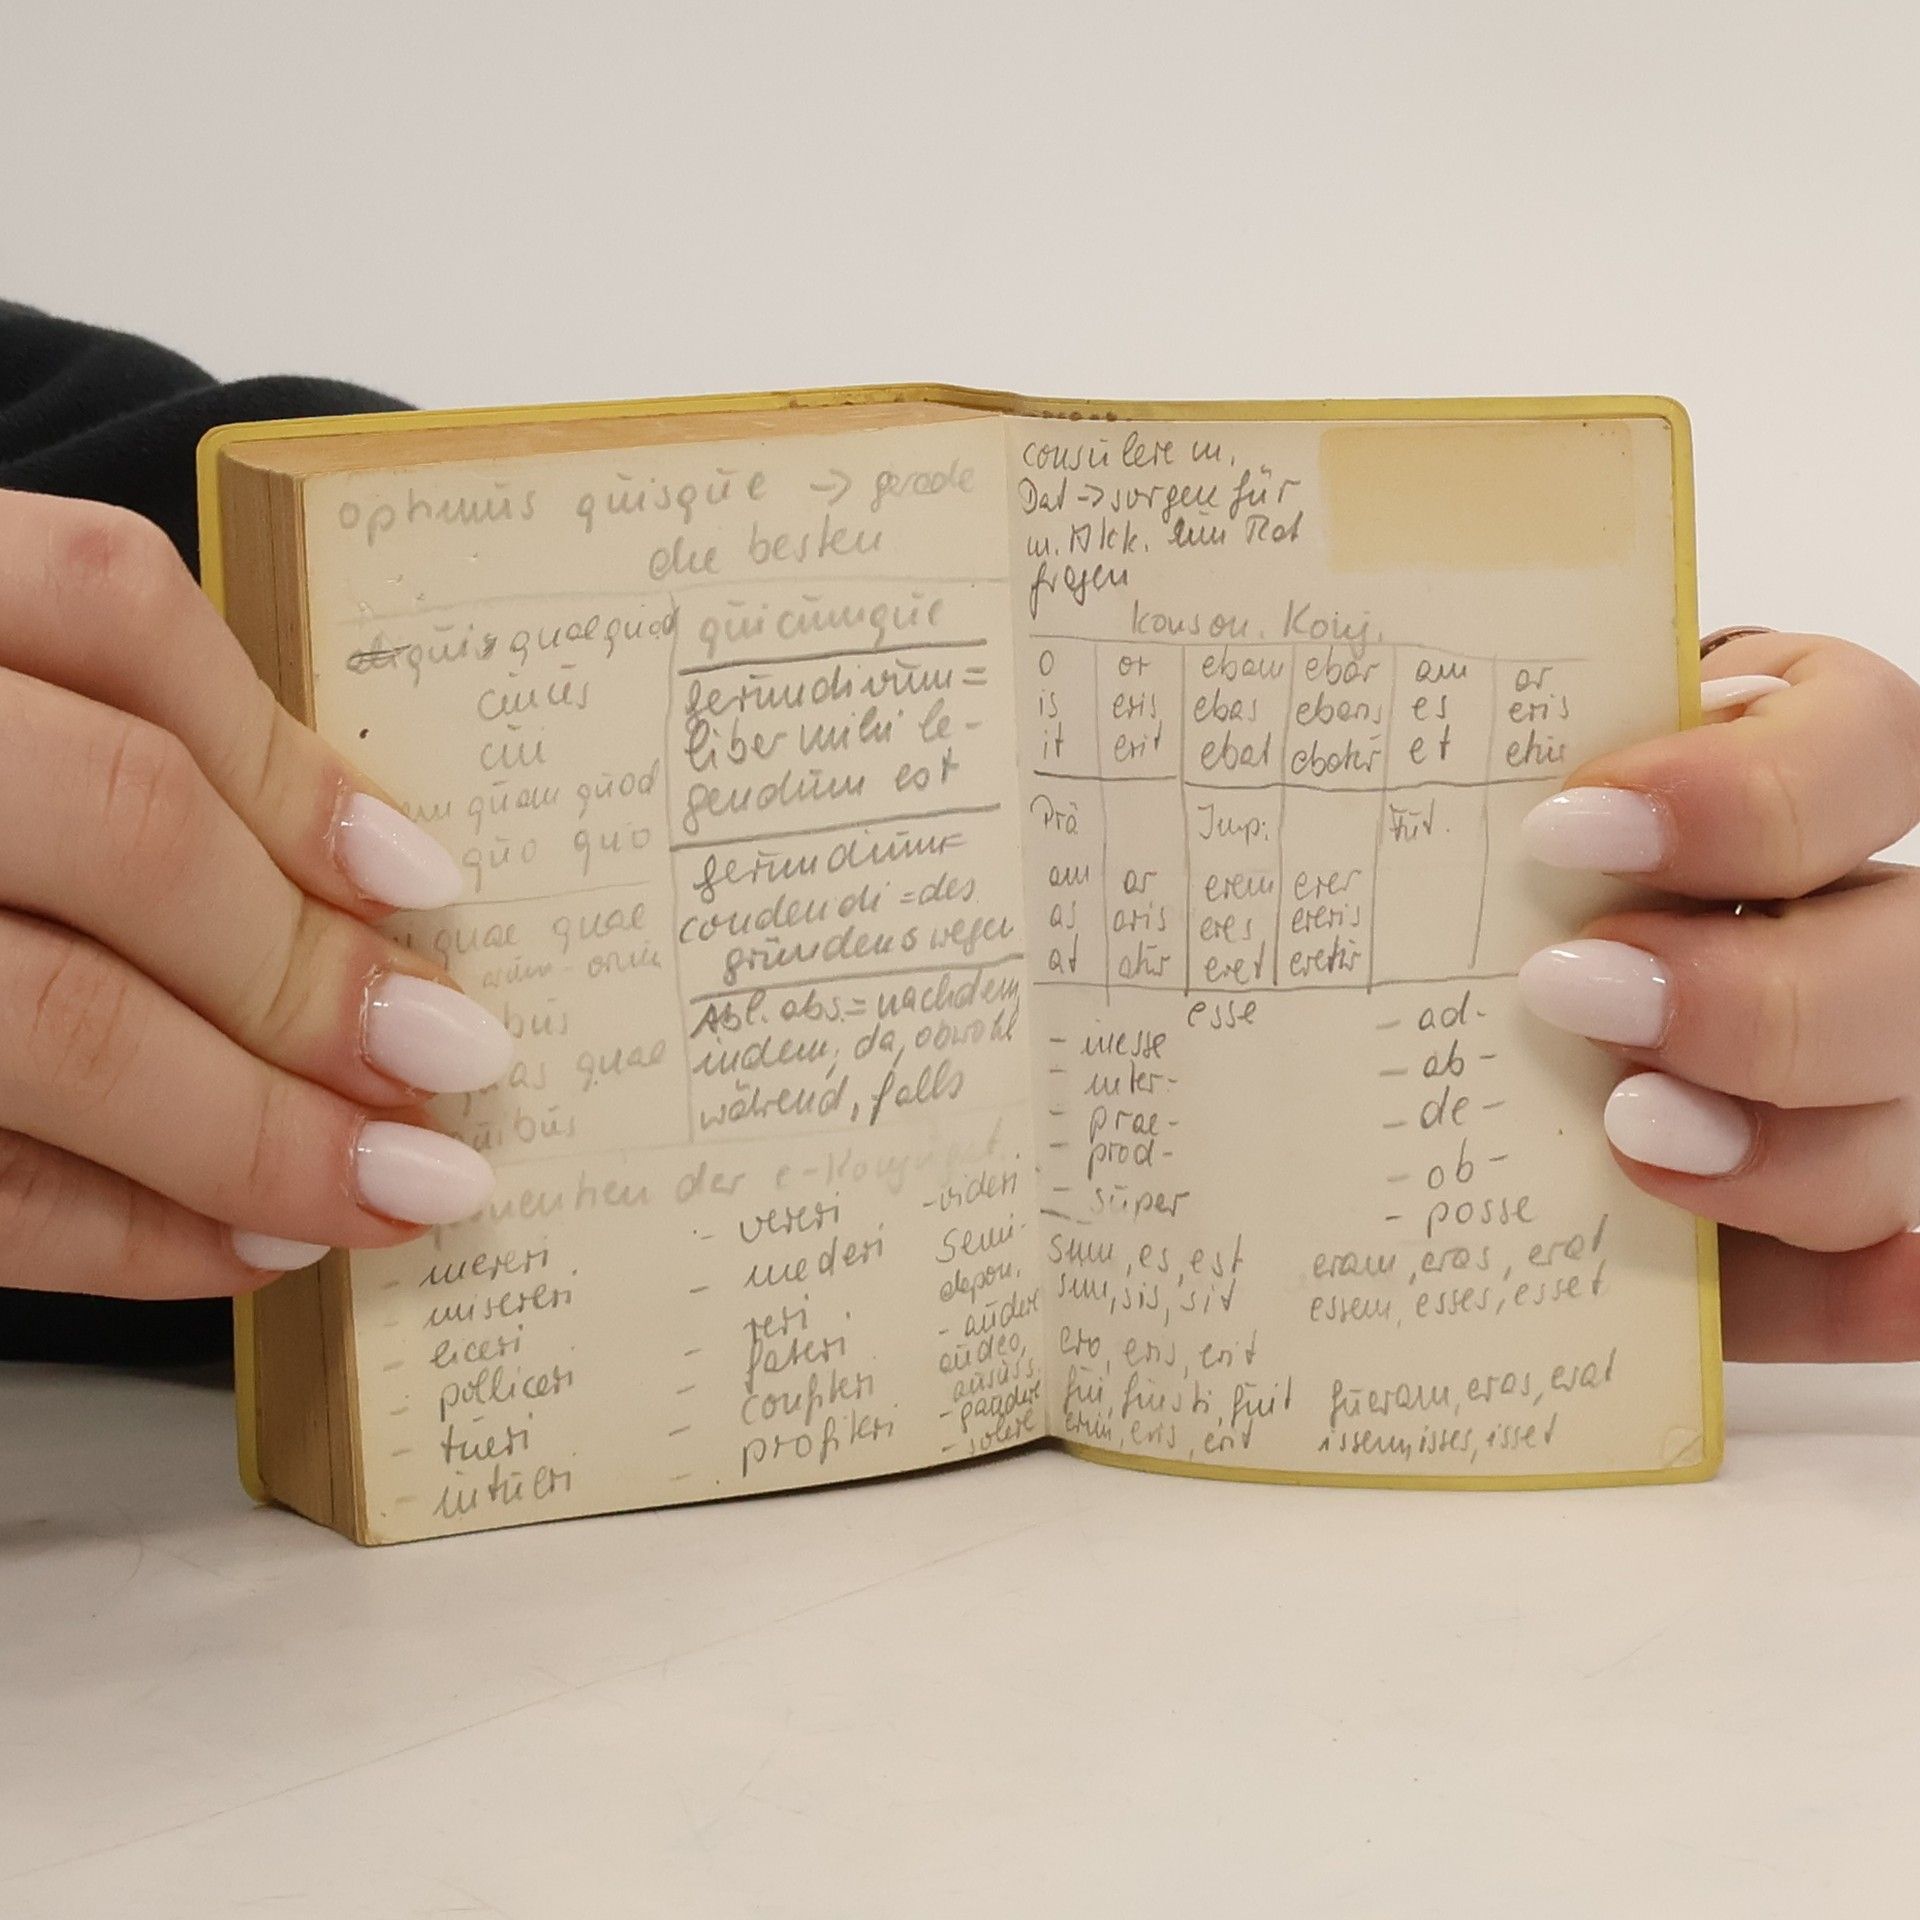 optimus quisque -> gerade
die besten
quis quae quod
cuius
cui
quam quod
quo quo
quae quae
arum - orum
bus
as quae
quibus
quicumque
Gerundivum =
liber mihi le-
gendum est
Gerundium =
condendi = des
gründens wegen
Abl. abs. = nachdem
indem, da, obwohl
während, falls
der e-Konjugat.
- mereri
- misereri
- liceri
- polliceri
- tueri
- intueri
- vereri
- mederi
reri
- fateri
- confiteri
- profiteri
- videri
Semi-
depon.
- audere
audeo,
ausus s.
- gaudere
- solere
consulere m.
Dat -> sorgen für
m. Akk. um Rat
fragen
konson. Konj.
o or ebam ebar am ar
is eris ebas ebaris es eris
it erit ebat ebatur et etur
Prä Imp. Fut.
am ar erem erer
as aris eres ereris
at atur eret eretur
esse
- inesse - ad-
- inter- - ab-
- prae- - de-
- prod- - ob-
- super - posse
sum, es, est eram, eras, erat
sim, sis, sit essem, esses, esset
ero, eris, erit
fui, fuisti, fuit fueram, eras, erat
erim, eris, erit issem, isses, isset